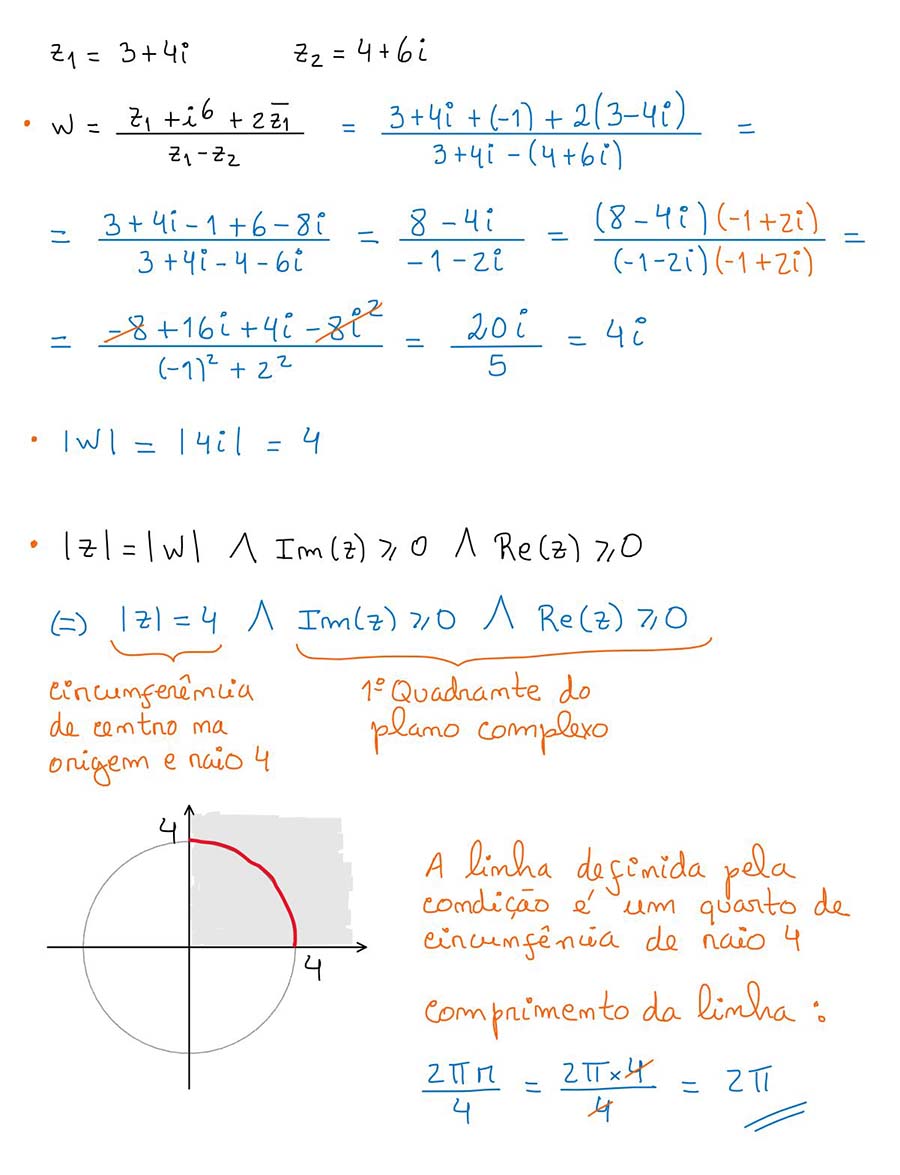 z₁ = 3+4i z₂ = 4+6i
• w = (z₁ + i⁶ + 2z̄₁)/(z₁ - z₂) = (3+4i + (-1) + 2(3-4i))/(3+4i - (4+6i)) =
= (3+4i-1+6-8i)/(3+4i-4-6i) = (8-4i)/(-1-2i) = ((8-4i)(-1+2i))/((-1-2i)(-1+2i)) =
= (-8+16i+4i-8i²)/((-1)²+2²) = 20i/5 = 4i
• |w| = |4i| = 4
• |z| = |w| ∧ Im(z) ⩾ 0 ∧ Re(z) ⩾ 0
(=) |z| = 4 ∧ Im(z) ⩾ 0 ∧ Re(z) ⩾ 0
circunferência
de centro na
origem e raio 4
1º Quadrante do
plano complexo
4
4
A linha definida pela
condição é um quarto de
circunfência de raio 4
comprimento da linha :
2πr/4 = 2π×4/4 = 2π